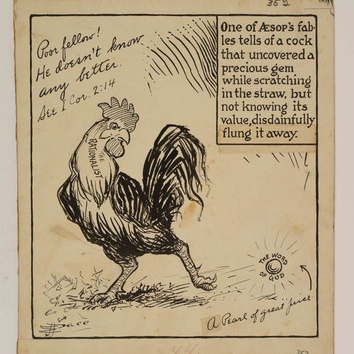 Poor fellow!
He doesn't know
any better.
See 1 Cor. 2:14
One of Æsop's fab-
les tells of a cock
that uncovered a
precious gem
while scratching
in the straw, but
not knowing its
value, disdainfully
flung it away.
THE
RATIONALIST
THE WORD
OF GOD
A Pearl of great price
Pace